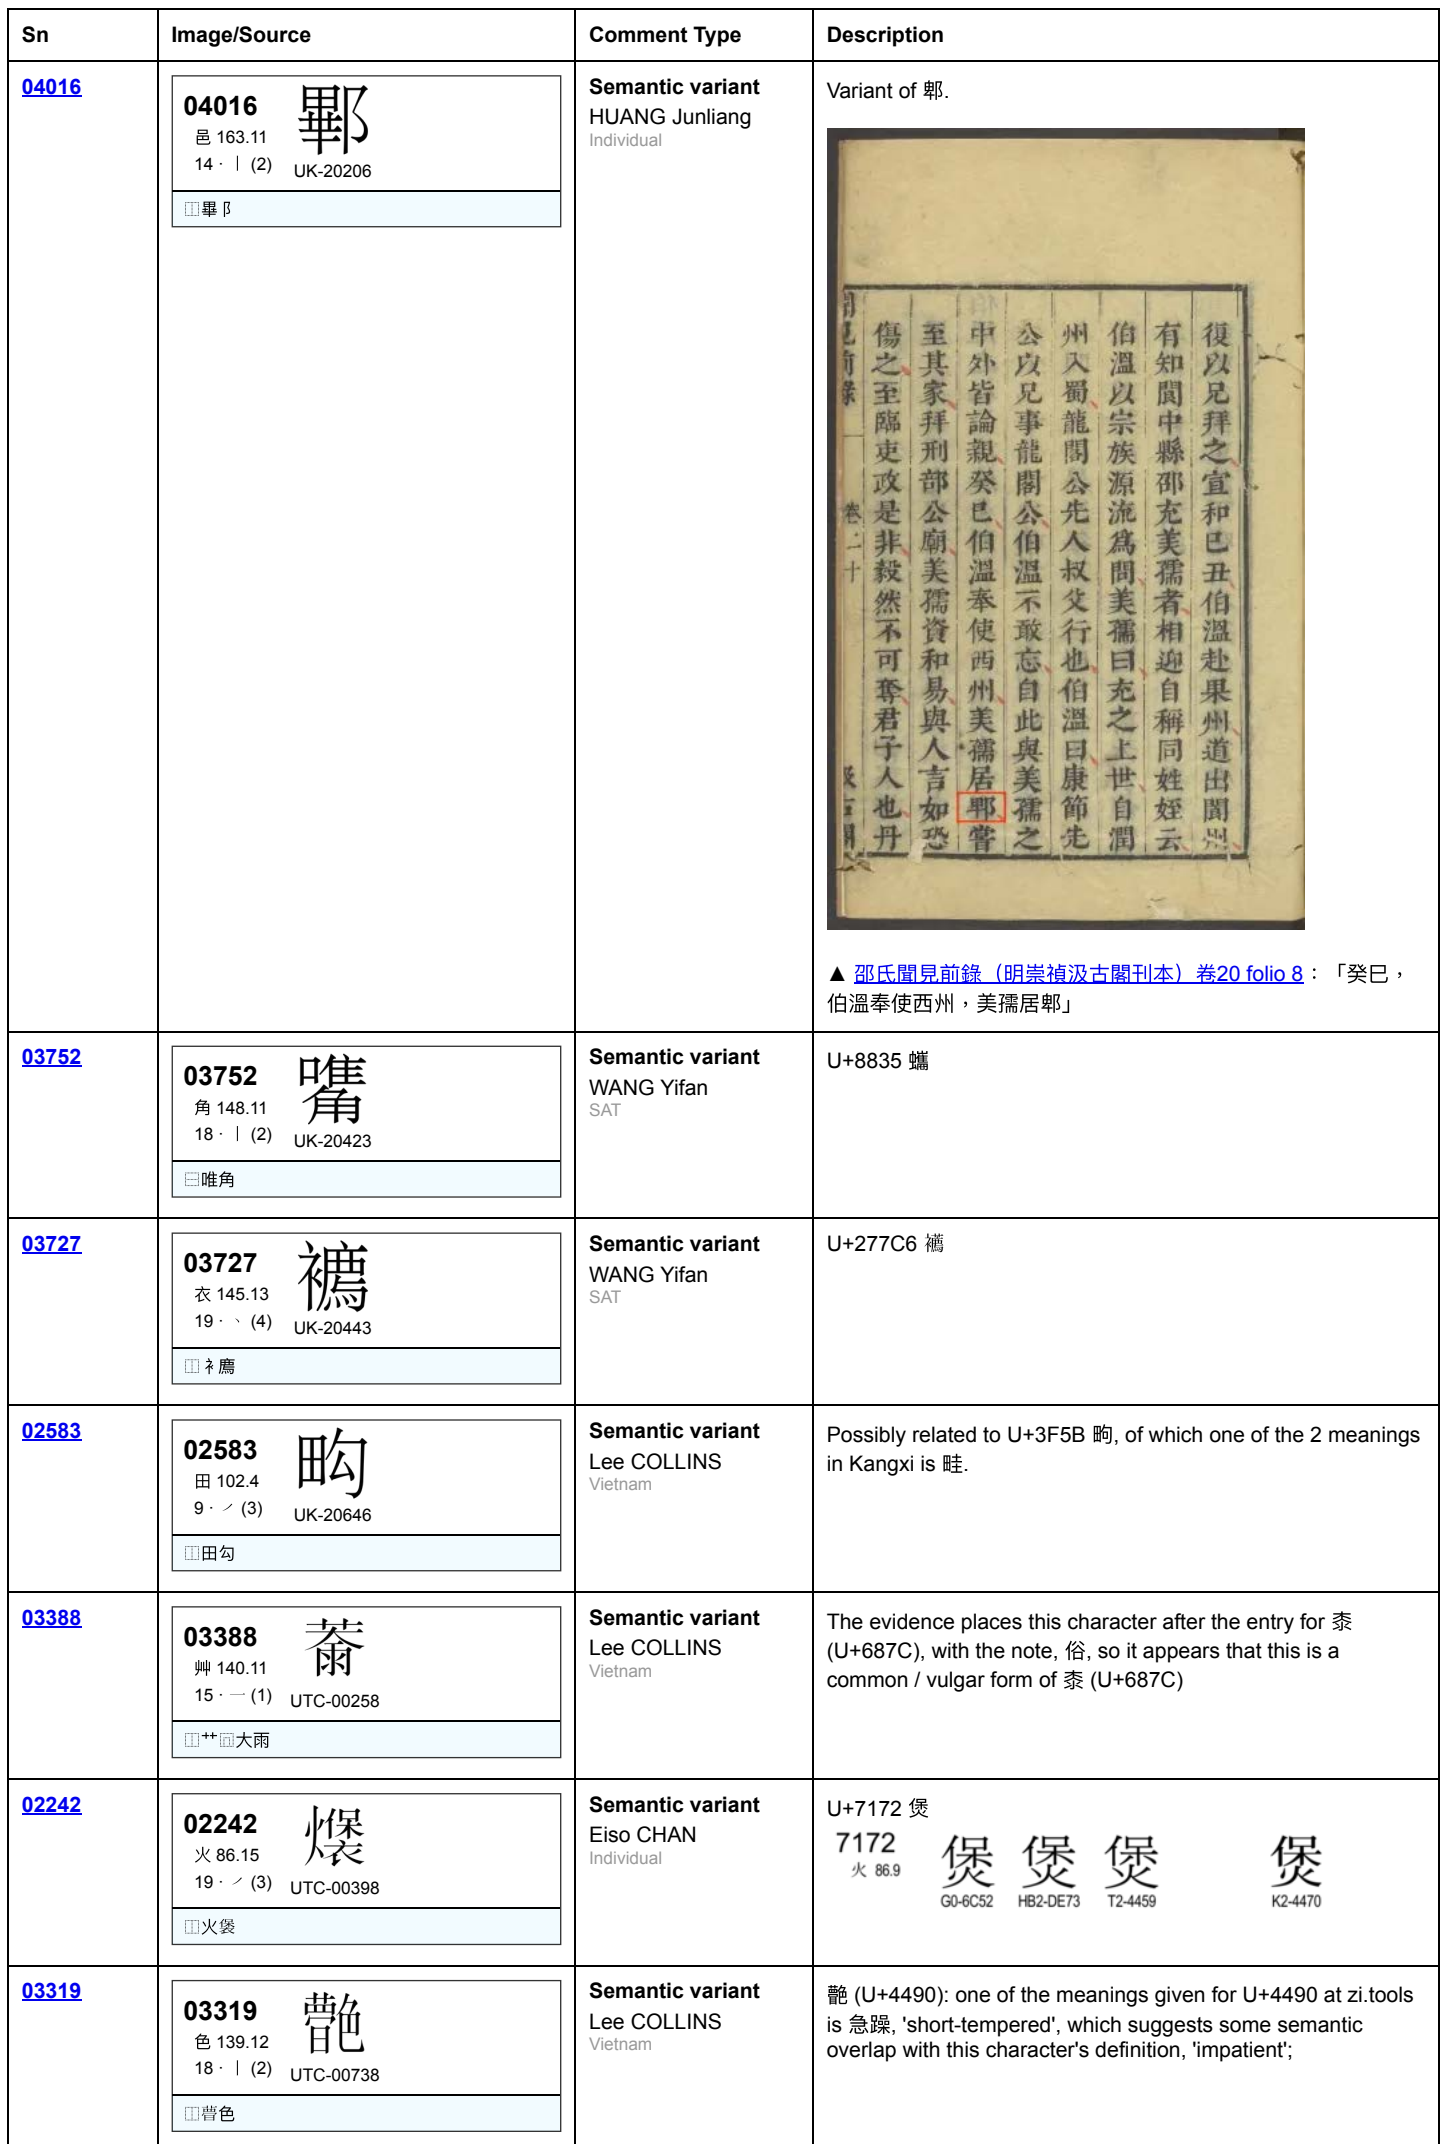 Sn Image/Source Comment Type Description
04016
04016
邑 163.11
14 · 丨 (2)
UK-20206
⿰畢阝
Semantic variant
HUANG Junliang
Individual
Variant of 郫.
復以兄拜之宣和己丑伯溫赴果州道出閬州
有知閬中縣邵充美孺者相迎自稱同姓姪云
伯溫以宗族源流爲問美孺曰充之上世自潤
州入蜀龍閣公先人叔父行也伯溫曰康節先
公以兄事龍閣公伯溫不敢忘自此與美孺之
中外皆論親癸巳伯溫奉使西州美孺居郫嘗
至其家拜刑部公廟美孺資和易與人言如恐
傷之至臨吏政是非毅然不可奪君子人也丹
▲ 邵氏聞見前錄（明崇禎汲古閣刊本）卷20 folio 8：「癸巳，
伯溫奉使西州，美孺居郫」
03752
03752
角 148.11
18 · 丨 (2)
UK-20423
⿱唯角
Semantic variant
WANG Yifan
SAT
U+8835 蠵
03727
03727
衣 145.13
19 · 丶 (4)
UK-20443
⿰衤廌
Semantic variant
WANG Yifan
SAT
U+277C6 𧟆
02583
02583
田 102.4
9 · ㇒ (3)
UK-20646
⿰田勾
Semantic variant
Lee COLLINS
Vietnam
Possibly related to U+3F5B 㽛, of which one of the 2 meanings
in Kangxi is 畦.
03388
03388
艸 140.11
15 · 一 (1)
UTC-00258
⿱艹⿵大雨
Semantic variant
Lee COLLINS
Vietnam
The evidence places this character after the entry for 桼
(U+687C), with the note, 俗, so it appears that this is a
common / vulgar form of 桼 (U+687C)
02242
02242
火 86.15
19 · ㇒ (3)
UTC-00398
⿰火褒
Semantic variant
Eiso CHAN
Individual
U+7172 煲
7172
火 86.9
煲 煲 煲 煲
G0-6C52 HB2-DE73 T2-4459 K2-4470
03319
03319
色 139.12
18 · 丨 (2)
UTC-00738
Semantic variant
Lee COLLINS
Vietnam
䒐 (U+4490): one of the meanings given for U+4490 at zi.tools
is 急躁, 'short-tempered', which suggests some semantic
overlap with this character's definition, 'impatient';